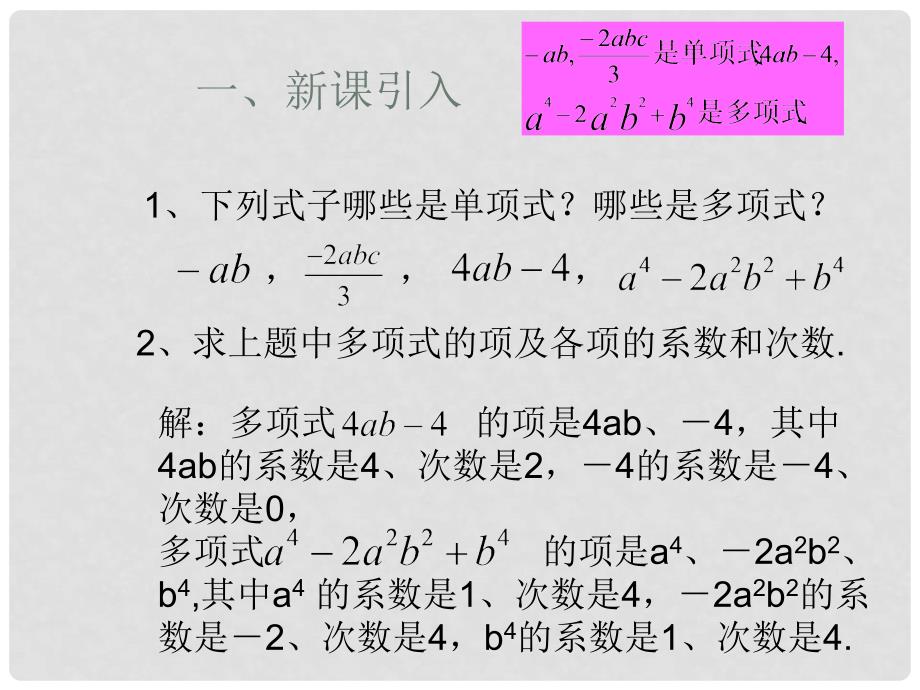 一、新课引入
-ab, \frac{-2abc}{3}是单项式, 4ab-4,
a⁴-2a²b²+b⁴是多项式.
1、下列式子哪些是单项式？哪些是多项式？
-ab， \frac{-2abc}{3}， 4ab-4， a⁴-2a²b²+b⁴
2、求上题中多项式的项及各项的系数和次数.
解：多项式4ab-4 的项是4ab、－4，其中
4ab的系数是4、次数是2，－4的系数是－4、
次数是0，
多项式a⁴-2a²b²+b⁴ 的项是a⁴、－2a²b²、
b⁴,其中a⁴ 的系数是1、次数是4，－2a²b²的系
数是－2、次数是4，b⁴的系数是1、次数是4.